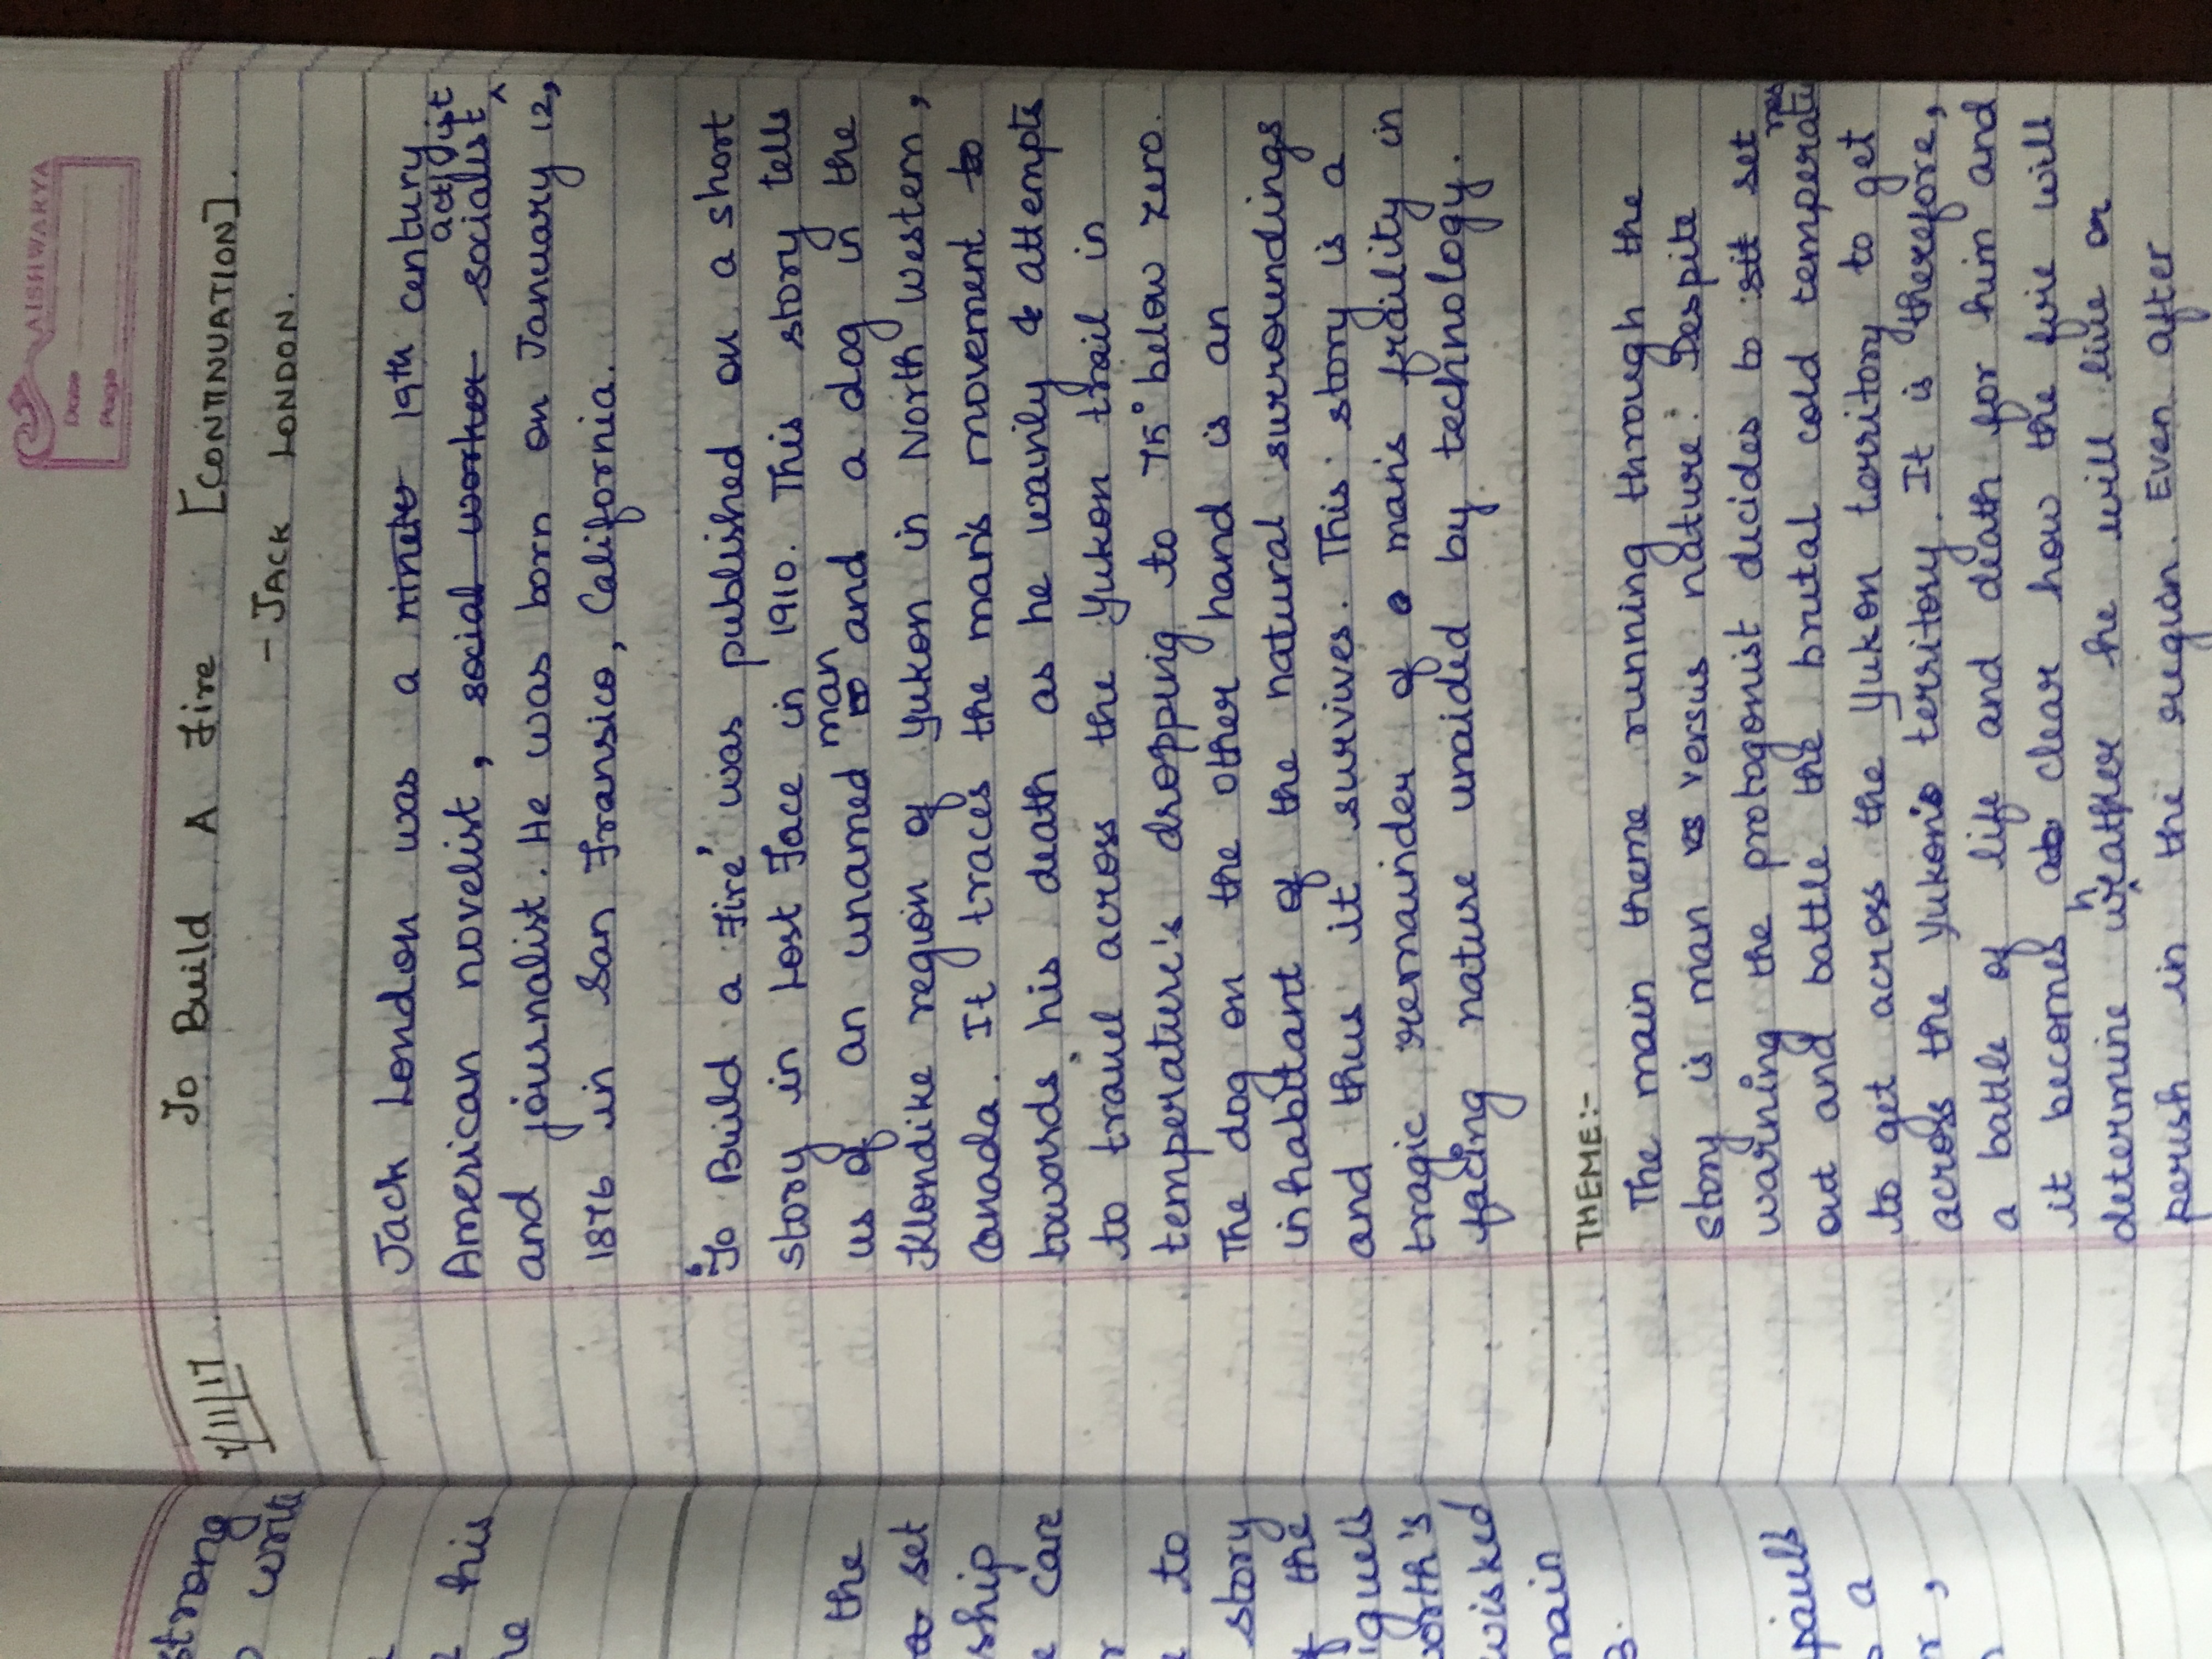 AISHWARYA
Date
Page
strong
write
his
he
the
a set
ship
care
to
story
the
iguel's
worth's
wisked
main
3.
paul's
a
7/11/17.
To Build A Fire [CONTINUATION].
- JACK LONDON.
Jack London was a ninete 19th century
American novelist, social worker socialist activist
and journalist. He was born on January 12,
1876 in San Fransico, California.
'To Build a Fire' was published on a short
story in Lost Face in 1910. This story tells
us of an unamed man and a dog in the
Klondike region of Yukon in North Western,
Canada. It traces the man's movement to
towards his death as he wainly attempts
to travel across the Yukon trail in
temperature's dropping to 75° below zero.
The dog on the other hand is an
inhabitant of the natural surroundings
and thus it survives. This story is a
tragic remainder of a man's fraility in
facing nature unaided by technology.
THEME:-
The main theme running through the
story is man vs versus nature. Despite
warning the protogonist decides to sit set
out and battle the brutal cold temperatures
to get across the Yukon territory to get
across the Yukon's territory. It is therefore,
a battle of life and death for him and
it becomes clear how the fire will
determine wheather he will live or
perish in the region. Even after